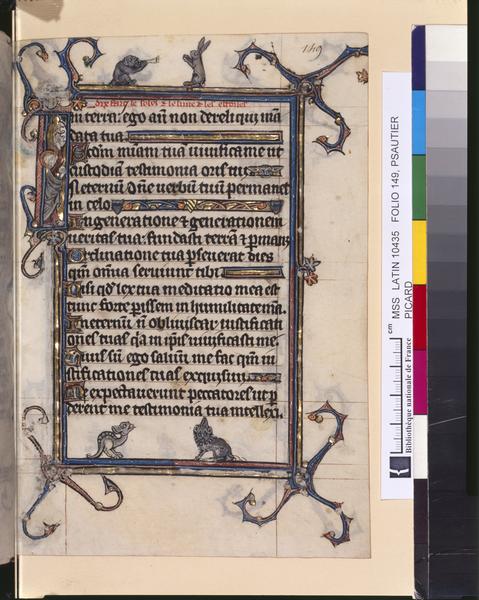 149
in terra: ego aut non dereliqui man
data tua
Scdm miam tuam vivifica me ut
custodiā testimonia oris tui
In eternum dñe verbū tuū permanet
in celo
In generatione & generationem
veritas tua: fundasti terrā & pmanz
Ordinatione tua pseverat dies
qm omnia serviunt tibi
Nisi qd lex tua meditatio mea est
tunc forte perissem in humilitate mea
In eternum n̄ obliviscar iustificati
ones tuas qia in ipis vivificasti me
Tuus sū ego salvū me fac qm iu
stificationes tuas exquisivi
Me expectaverunt peccatores ut p
derent me testimonia tua intellexi
MSS LATIN 10435 FOLIO 149, PSAUTIER
PICARD
cm
Bibliothèque nationale de France